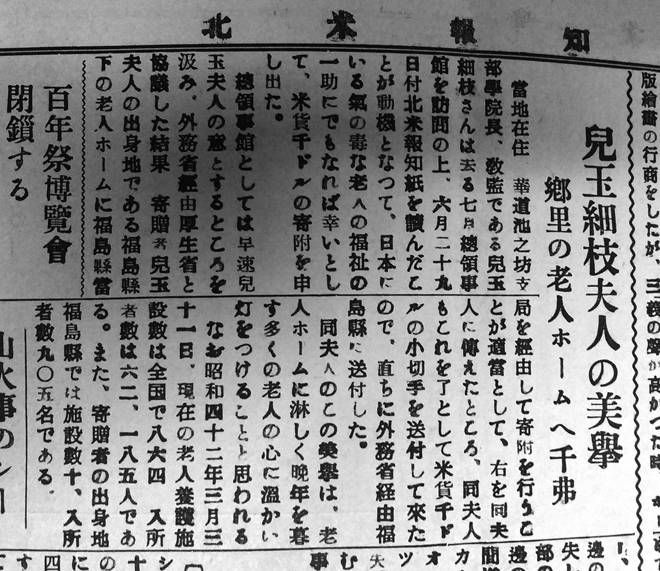 北米報知
版繪畫の行商をしたが、
兒玉細枝夫人の美擧
鄕里の老人ホームへ千弗
當地在住 華道池之坊支
部學院長、敎監である兒玉
細枝さんは去る七月總領事
館を訪問の上、六月二十九
日付北米報知紙を讀んだこ
とが動機となつて、日本に
いる氣の毒な老人の福祉の
一助にでもなれば幸いとし
て、米貨千ドルの寄附を申
し出た。
總領事館としては早速兒
玉夫人の意とするところを
汲み、外務省經由厚生省と
協議した結果 寄贈者兒玉
夫人の出身地である福島縣
下の老人ホームに福島縣當
局を經由して寄附を行うこ
とが適當として、右を同夫
人に傳えたところ、同夫人
もこれを了として米貨千ド
ルの小切手を送付して來た
ので、直ちに外務省經由福
島縣に送付した。
同夫人のこの美擧は、老
人ホームに淋しく晩年を暮
す多くの老人の心に溫かい
灯をつけることと思われる
なお昭和四十二年三月三
十一日、現在の老人養護施
設數は全国で八六四 入所
者數は六二、一八五人であ
る。また、寄贈者の出身地
福島縣では施設數十、入所
者數九〇五名である。
百年祭博覽會
閉鎖する
山火事のシー